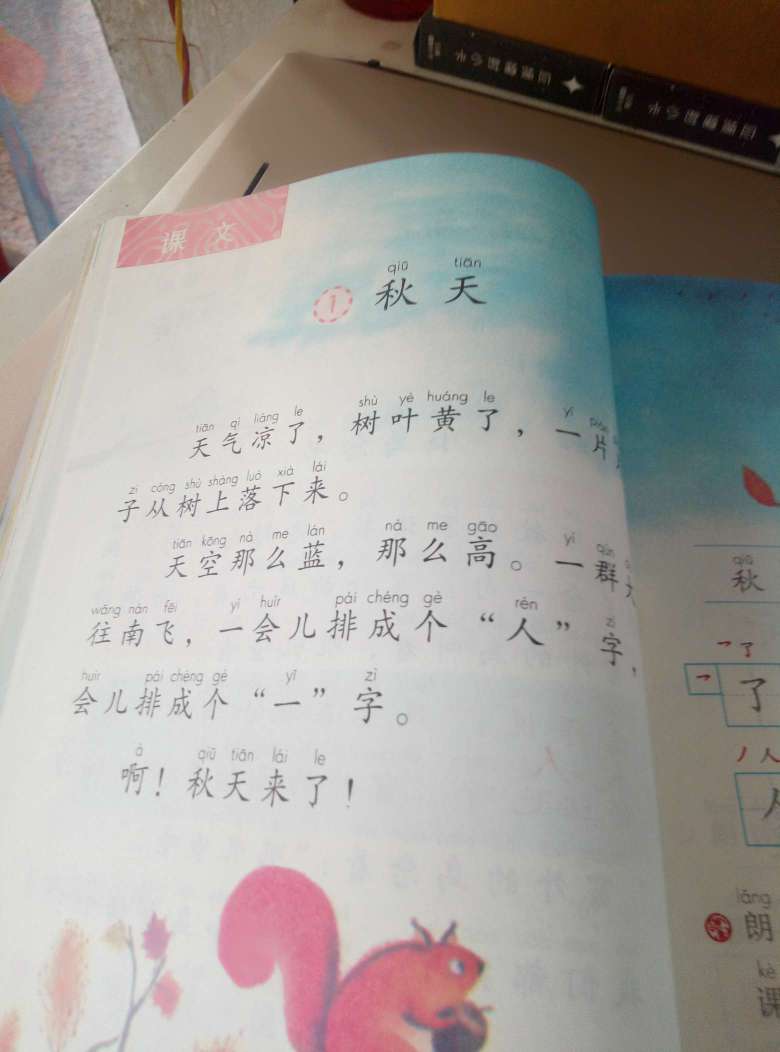 课文
qiū tiān
1 秋天
tiān qì liáng le shù yè huáng le yí
天气凉了，树叶黄了，一片
zi cóng shù shàng luò xià lái
子从树上落下来。
tiān kōng nà me lán nà me gāo yì qún
天空那么蓝，那么高。一群
wǎng nán fēi yí huìr pái chéng gè rén zì
往南飞，一会儿排成个“人”字，
huìr pái chéng gè yī zì
会儿排成个“一”字。
à qiū tiān lái le
啊！秋天来了！
qiū
秋
了
了
人
lǎng
朗
kè
课